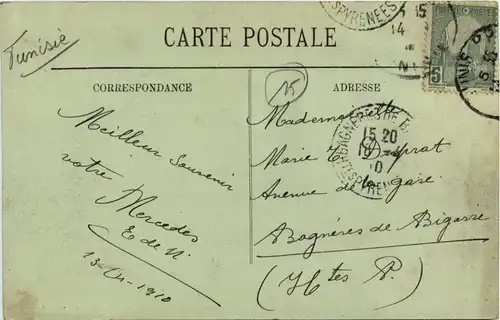 Tunisie
CARTE POSTALE
CORRESPONDANCE
ADRESSE
Meilleur souvenir
votre
Mercedes
E de N.
Mademoiselle
Marie
Avenue de la gare
Bagnères de Bigorre
(Htes P.)
5
15 20
TUNIS